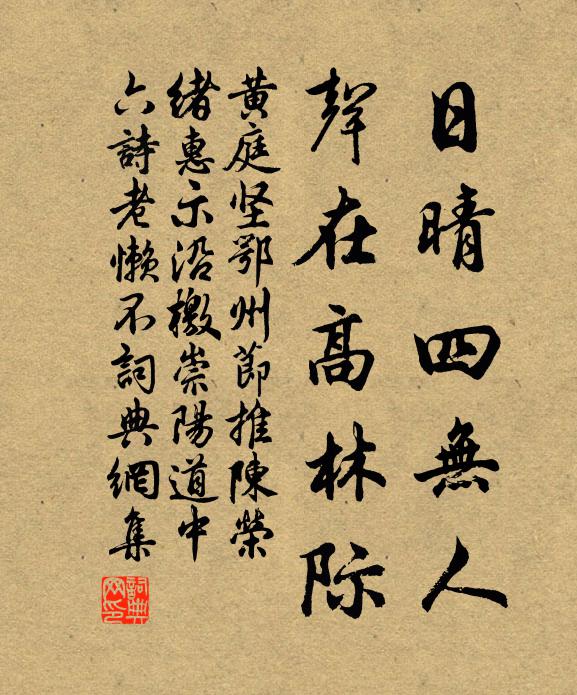 日晴四無人
聲在高林际
黄庭坚鄂州節推陳榮
緒惠示沿檄崇陽道中
六詩老懶不詞典網集
詞典网印